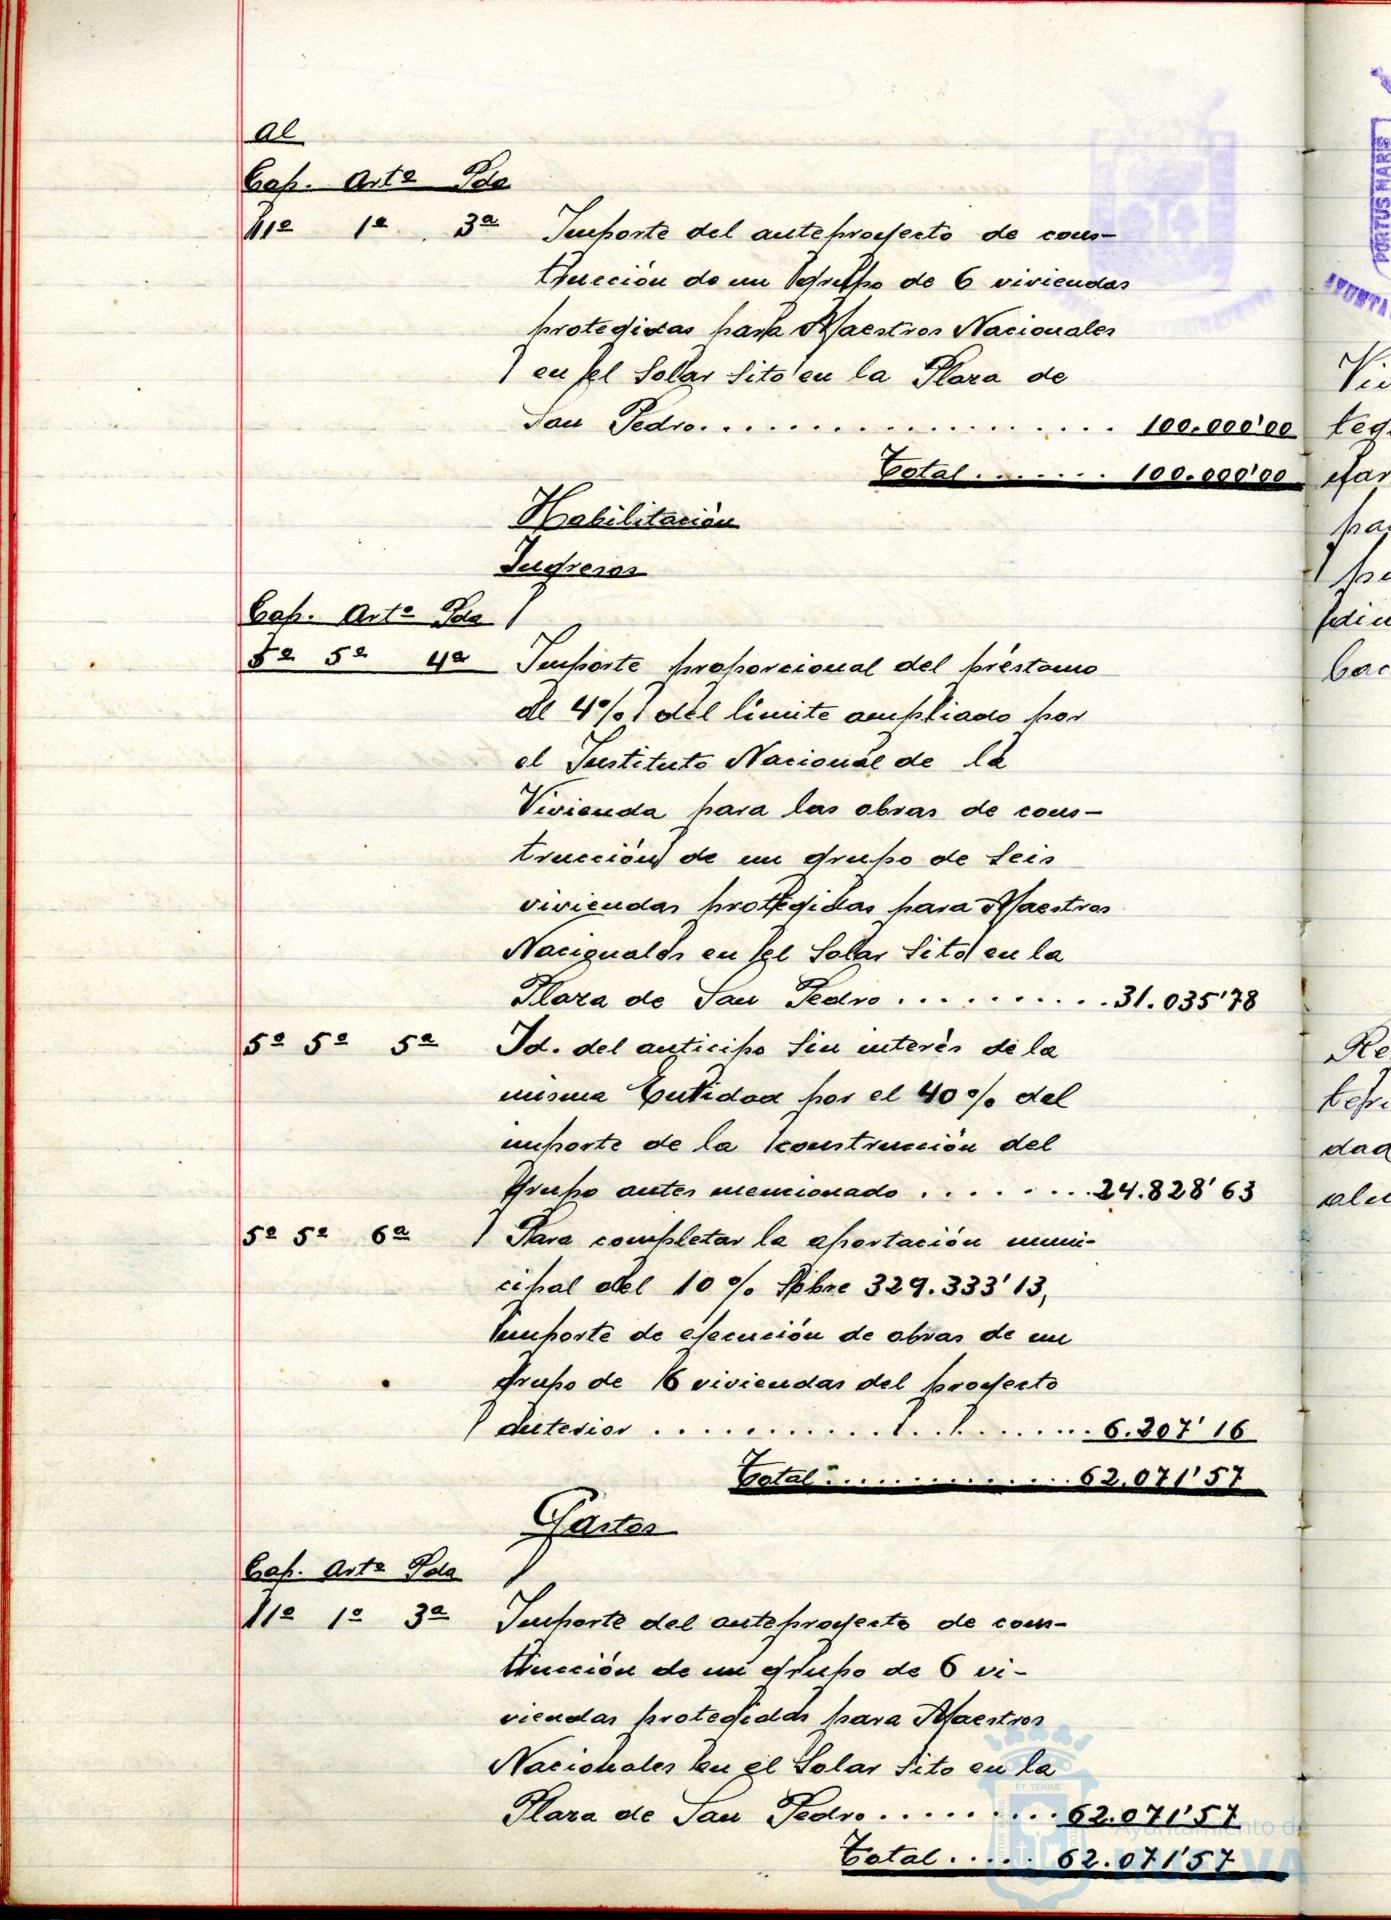 al
Cap. Artº Pda
11º 1º 3ª Importe del anteproyecto de cons-
trucción de un grupo de 6 viviendas
protegidas para Maestros Nacionales
en el Solar Sito en la Plaza de
San Pedro. . . . . . . . . . . . . . . . . . 100.000'00
Total . . . . . . . 100.000'00
Habilitación
Ingresos
Cap. Artº Pda
5º 5º 4ª Importe proporcional del préstamo
al 4% del límite ampliado por
el Instituto Nacional de la
Vivienda para las obras de cons-
trucción de un grupo de Seis
viviendas protegidas para Maestros
Nacionales en el Solar Sito en la
Plaza de San Pedro . . . . . . . . . . 31.035'78
5º 5º 5ª Id. del anticipo Sin interés de la
misma Entidad por el 40% del
importe de la construcción del
grupo antes mencionado . . . . . . . . 24.828'63
5º 5º 6ª Para completar la aportación muni-
cipal del 10% Sobre 329.333'13,
importe de ejecución de obras de un
grupo de 6 viviendas del proyecto
anterior . . . . . . . . . . . . . . . . . . 6.207'16
Total . . . . . . . . . . . . . 62.071'57
Gastos
Cap. Artº Pda
11º 1º 3ª Importe del anteproyecto de cons-
trucción de un grupo de 6 vi-
viendas protegidas para Maestros
Nacionales en el Solar Sito en la
Plaza de San Pedro . . . . . . . . . 62.071'57
Total . . . . . 62.071'57
PORTUS MARIS
ET TERRÆ
Ayuntamiento de
HUELVA